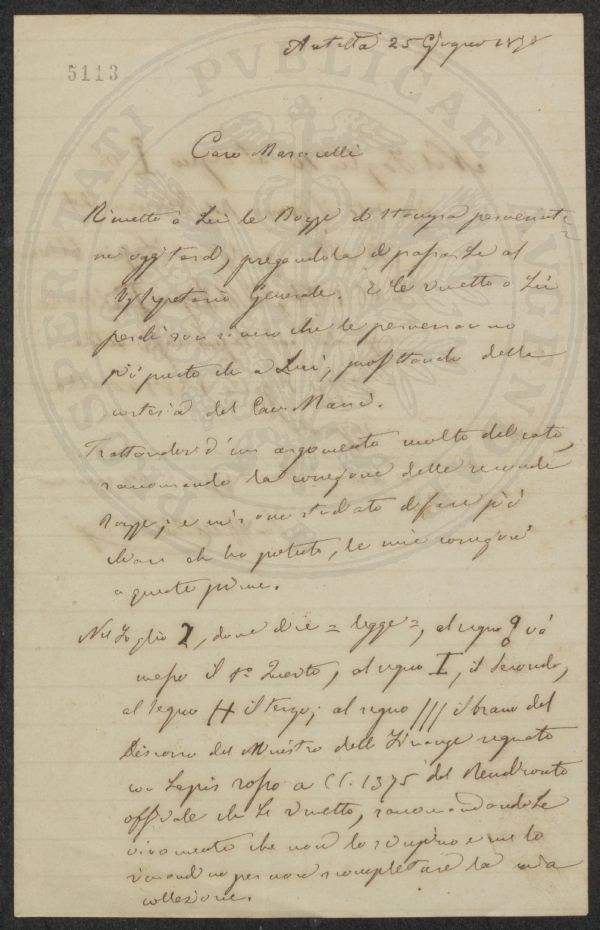 Antella 25 Giugno 187
5113
PROSPERITATI PVBLICAE AVGENDAE
Caro Marucelli
Rimetto a Lei le Bozze di stampa pervenute-
mi oggi tardi, pregandola di passarle al
Segretario Generale. E le rimetto a Lei
perché son sicuro che le perverranno
più presto che a Lui, profittando della
cortesia del Cav. Manni.
Trattandosi d'un argomento molto delicato,
raccomando la correzione delle seconde
Bozze; e mi sono studiato di fare più
chiare che ho potuto, le mie correzioni
a queste prime.
Nel foglio 2, dove dice = legge =, al segno 9 và
messo il 1º Quesito, al segno I, il secondo,
al segno H il terzo; al segno /// il brano del
Discorso del Ministro delle Finanze segnato
con Lapis rosso a C. 1375 del Rendiconto
officiale che Le rimetto, raccomandandole
vivamente che non lo sciupino e me lo
rimandino per non scompletare la mia
collezione.